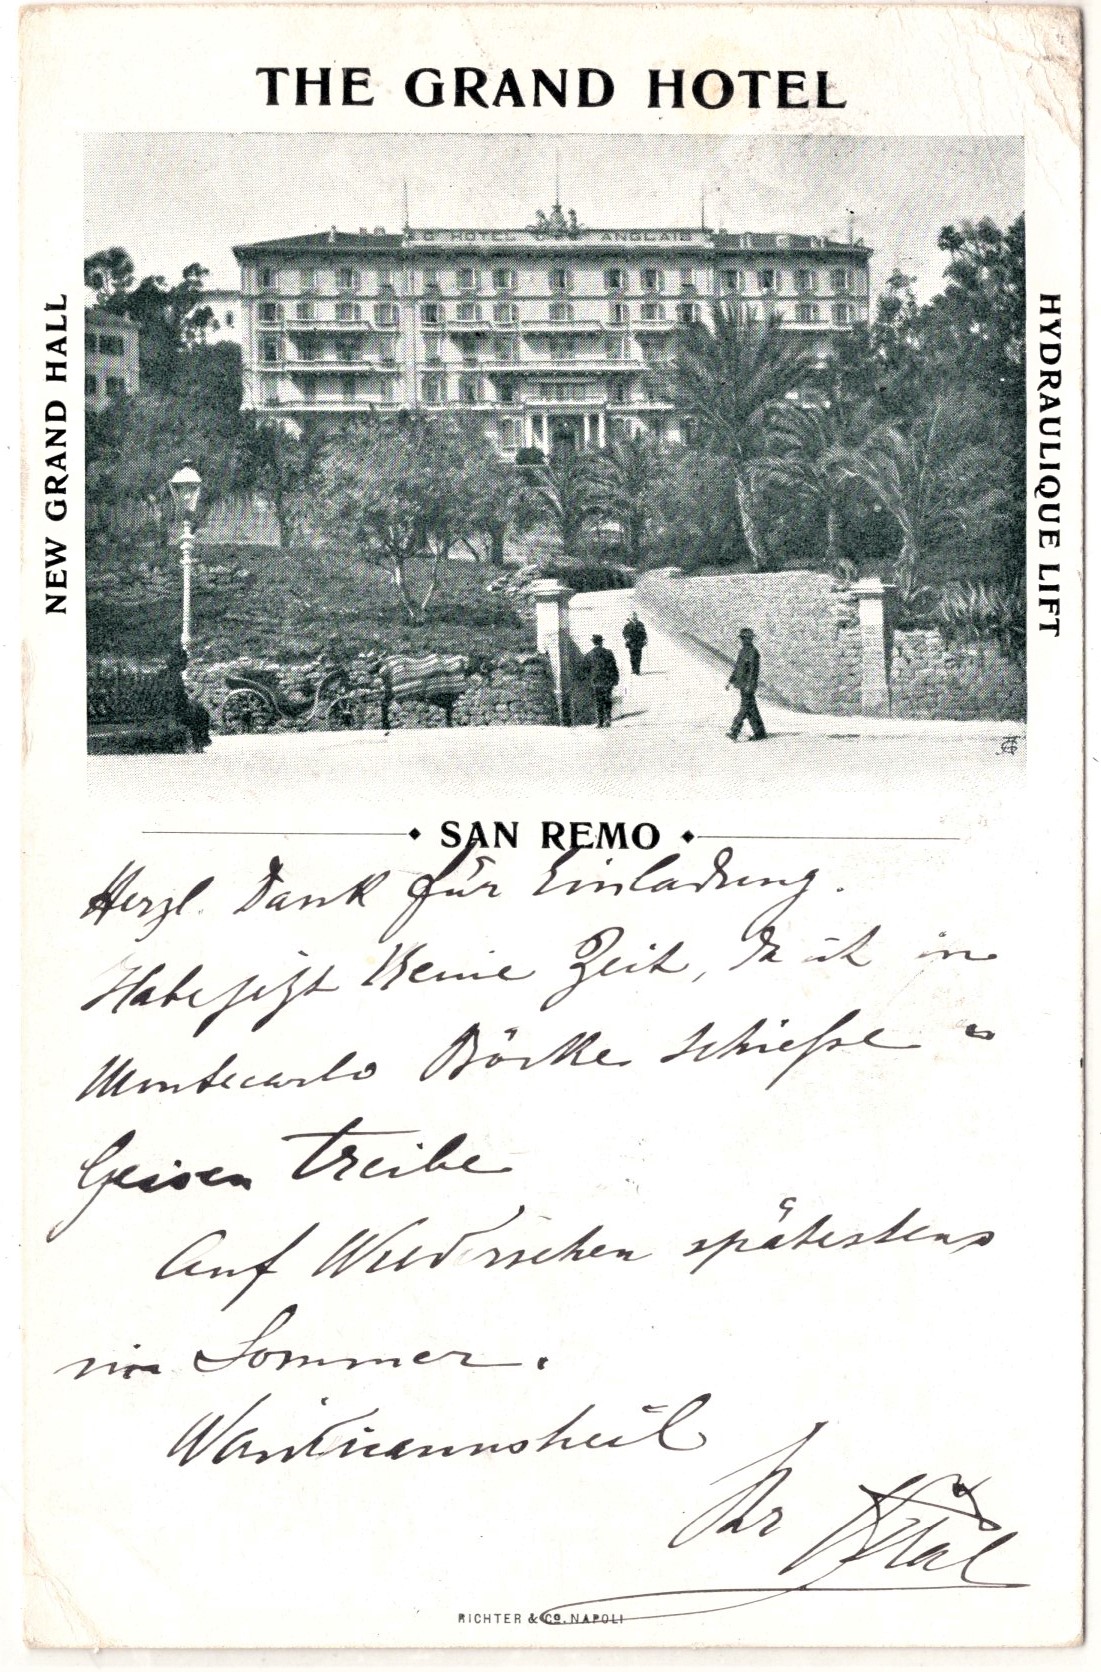 THE GRAND HOTEL
G. HOTEL DES ANGLAIS
NEW GRAND HALL
HYDRAULIQUE LIFT
SAN REMO
Herzl. Dank für Einladung.
Habe jetzt keine Zeit, da ich in
Montecarlo Böcke schieße u
Geisen treibe
Auf Wiedersehen spätestens
im Sommer.
Waidmannsheil
Ihr
RICHTER & Co. NAPOLI